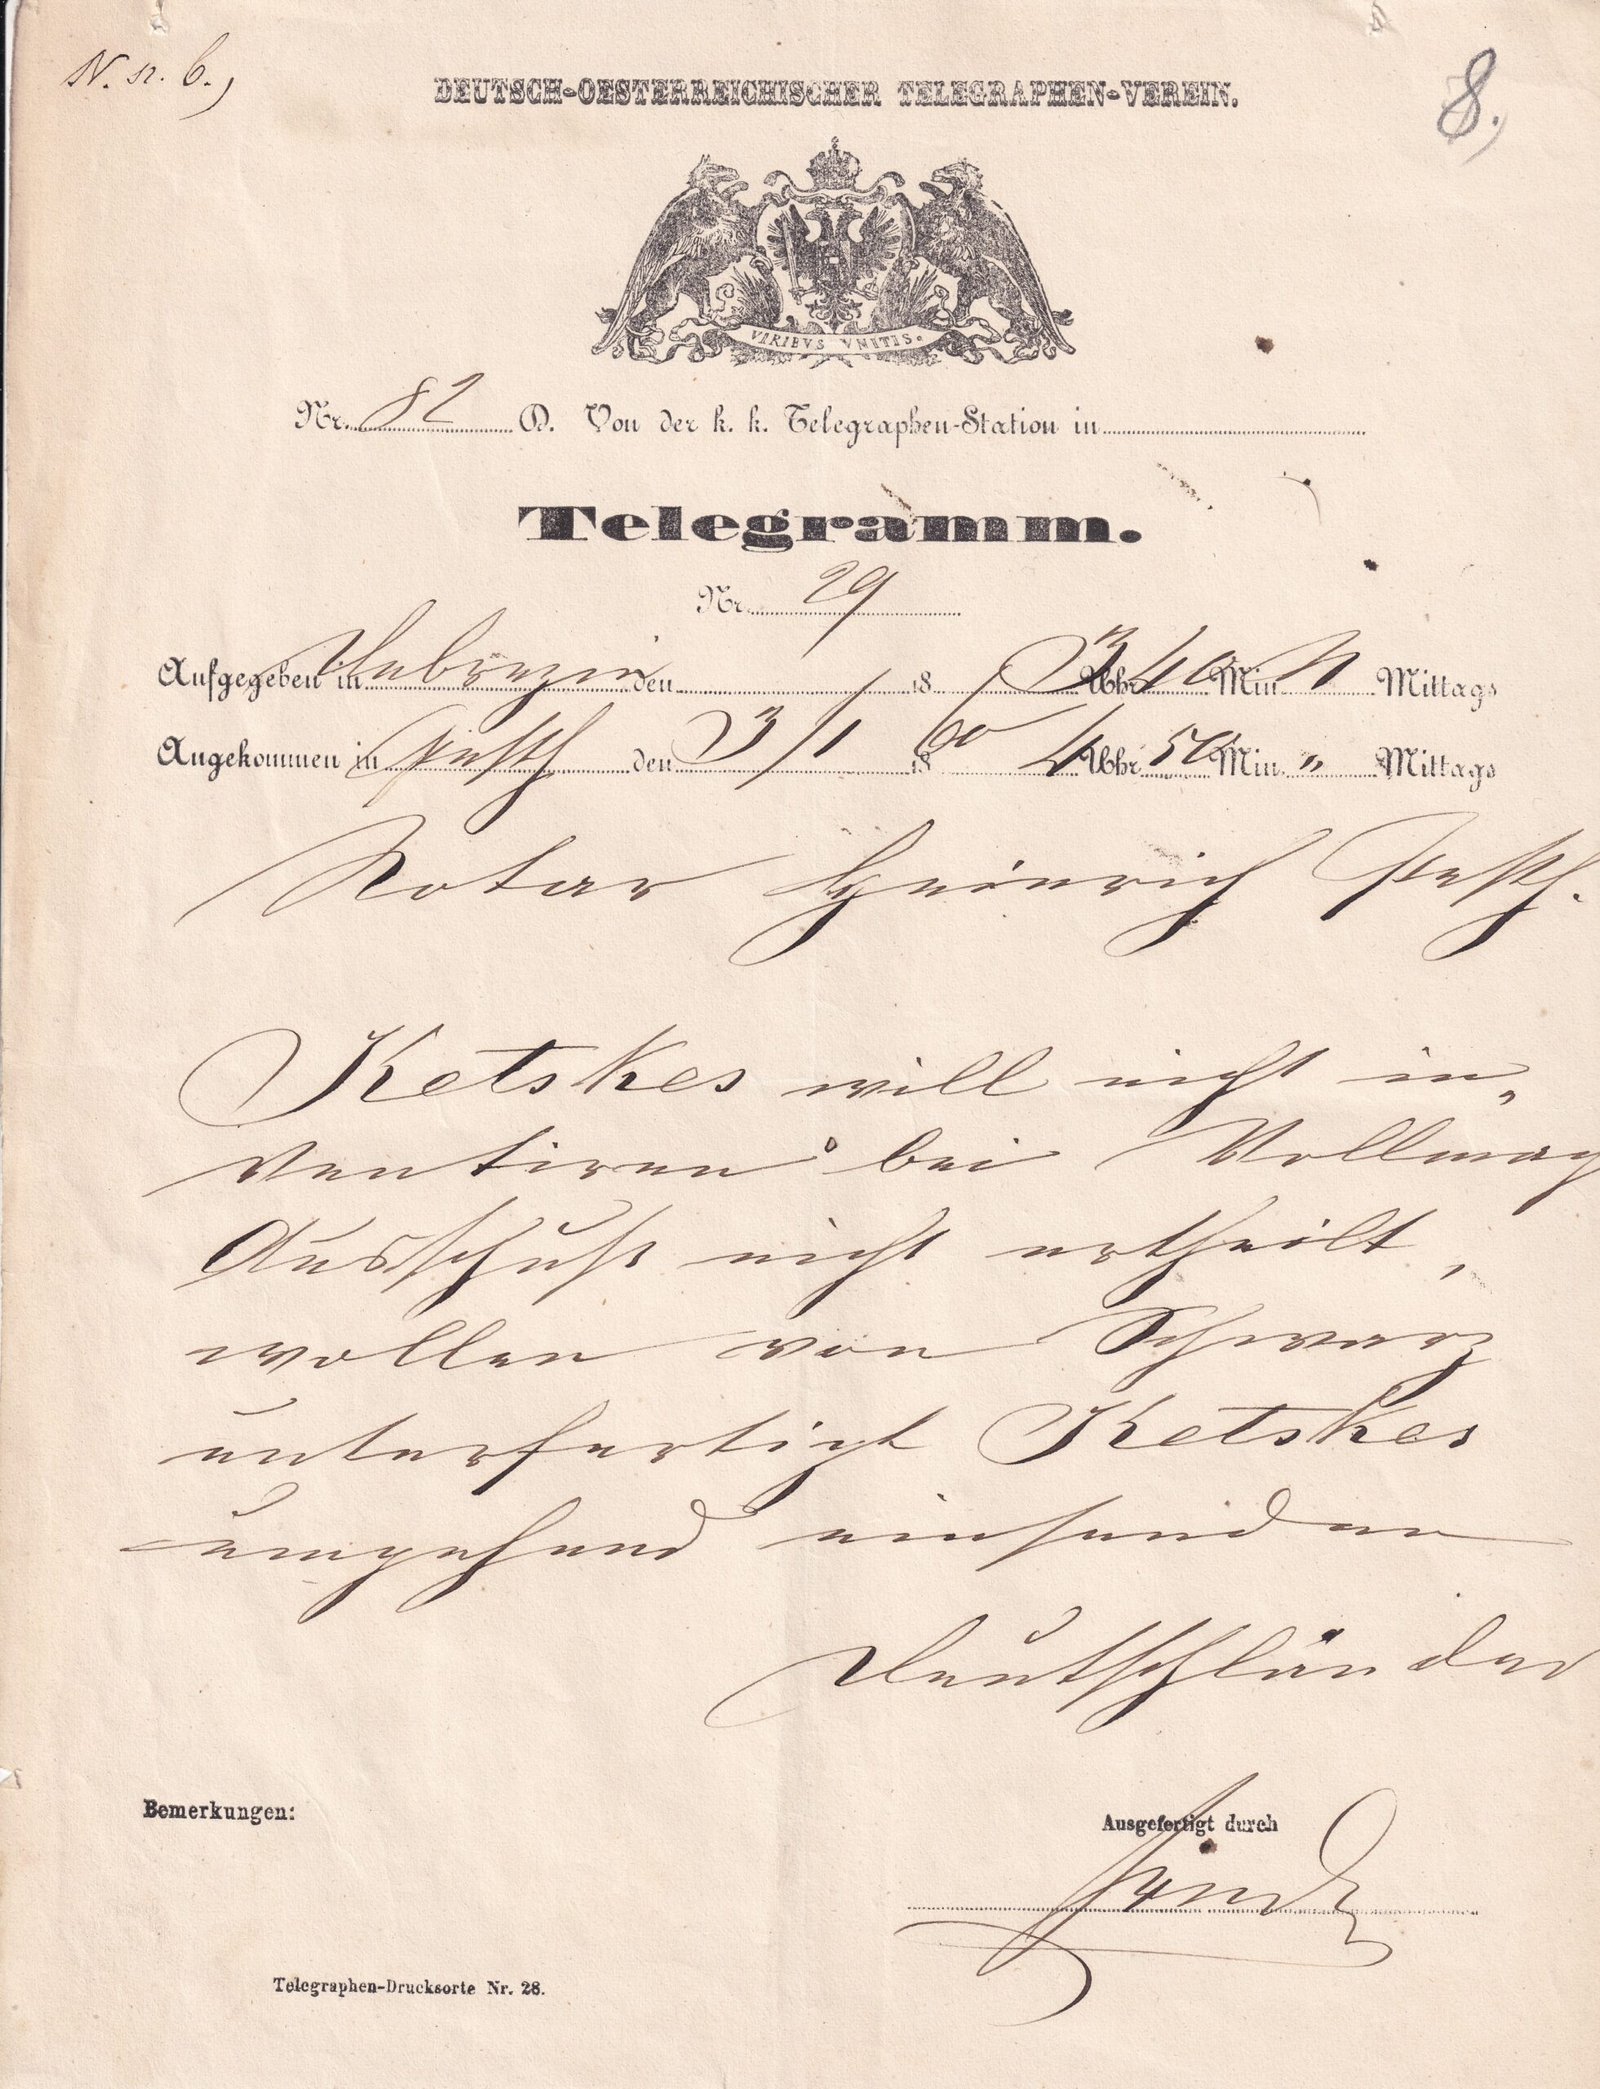 N. n. 6.,
8.
DEUTSCH-OESTERREICHISCHER TELEGRAPHEN-VEREIN.
VIRIBVS VNITIS.
Nr. 82 D. Von der k. k. Telegraphen-Station in
Telegramm.
Nr. 29
Aufgegeben in Debrezin den 18 3 Uhr 40 Min N Mittags
Angekommen in Pesth den 3/1 18 60 4 Uhr 50 Min. " Mittags
Notar Heinrich Pesth.
Ketskes will nicht in„
ventiren bei Vollmag
Ausschuß nicht ertheilt,
wollen von Schwarz
unterfertigt Ketskes
umgehend einsenden
Deutschländer
Bemerkungen:
Ausgefertigt durch
Telegraphen-Drucksorte Nr. 28.